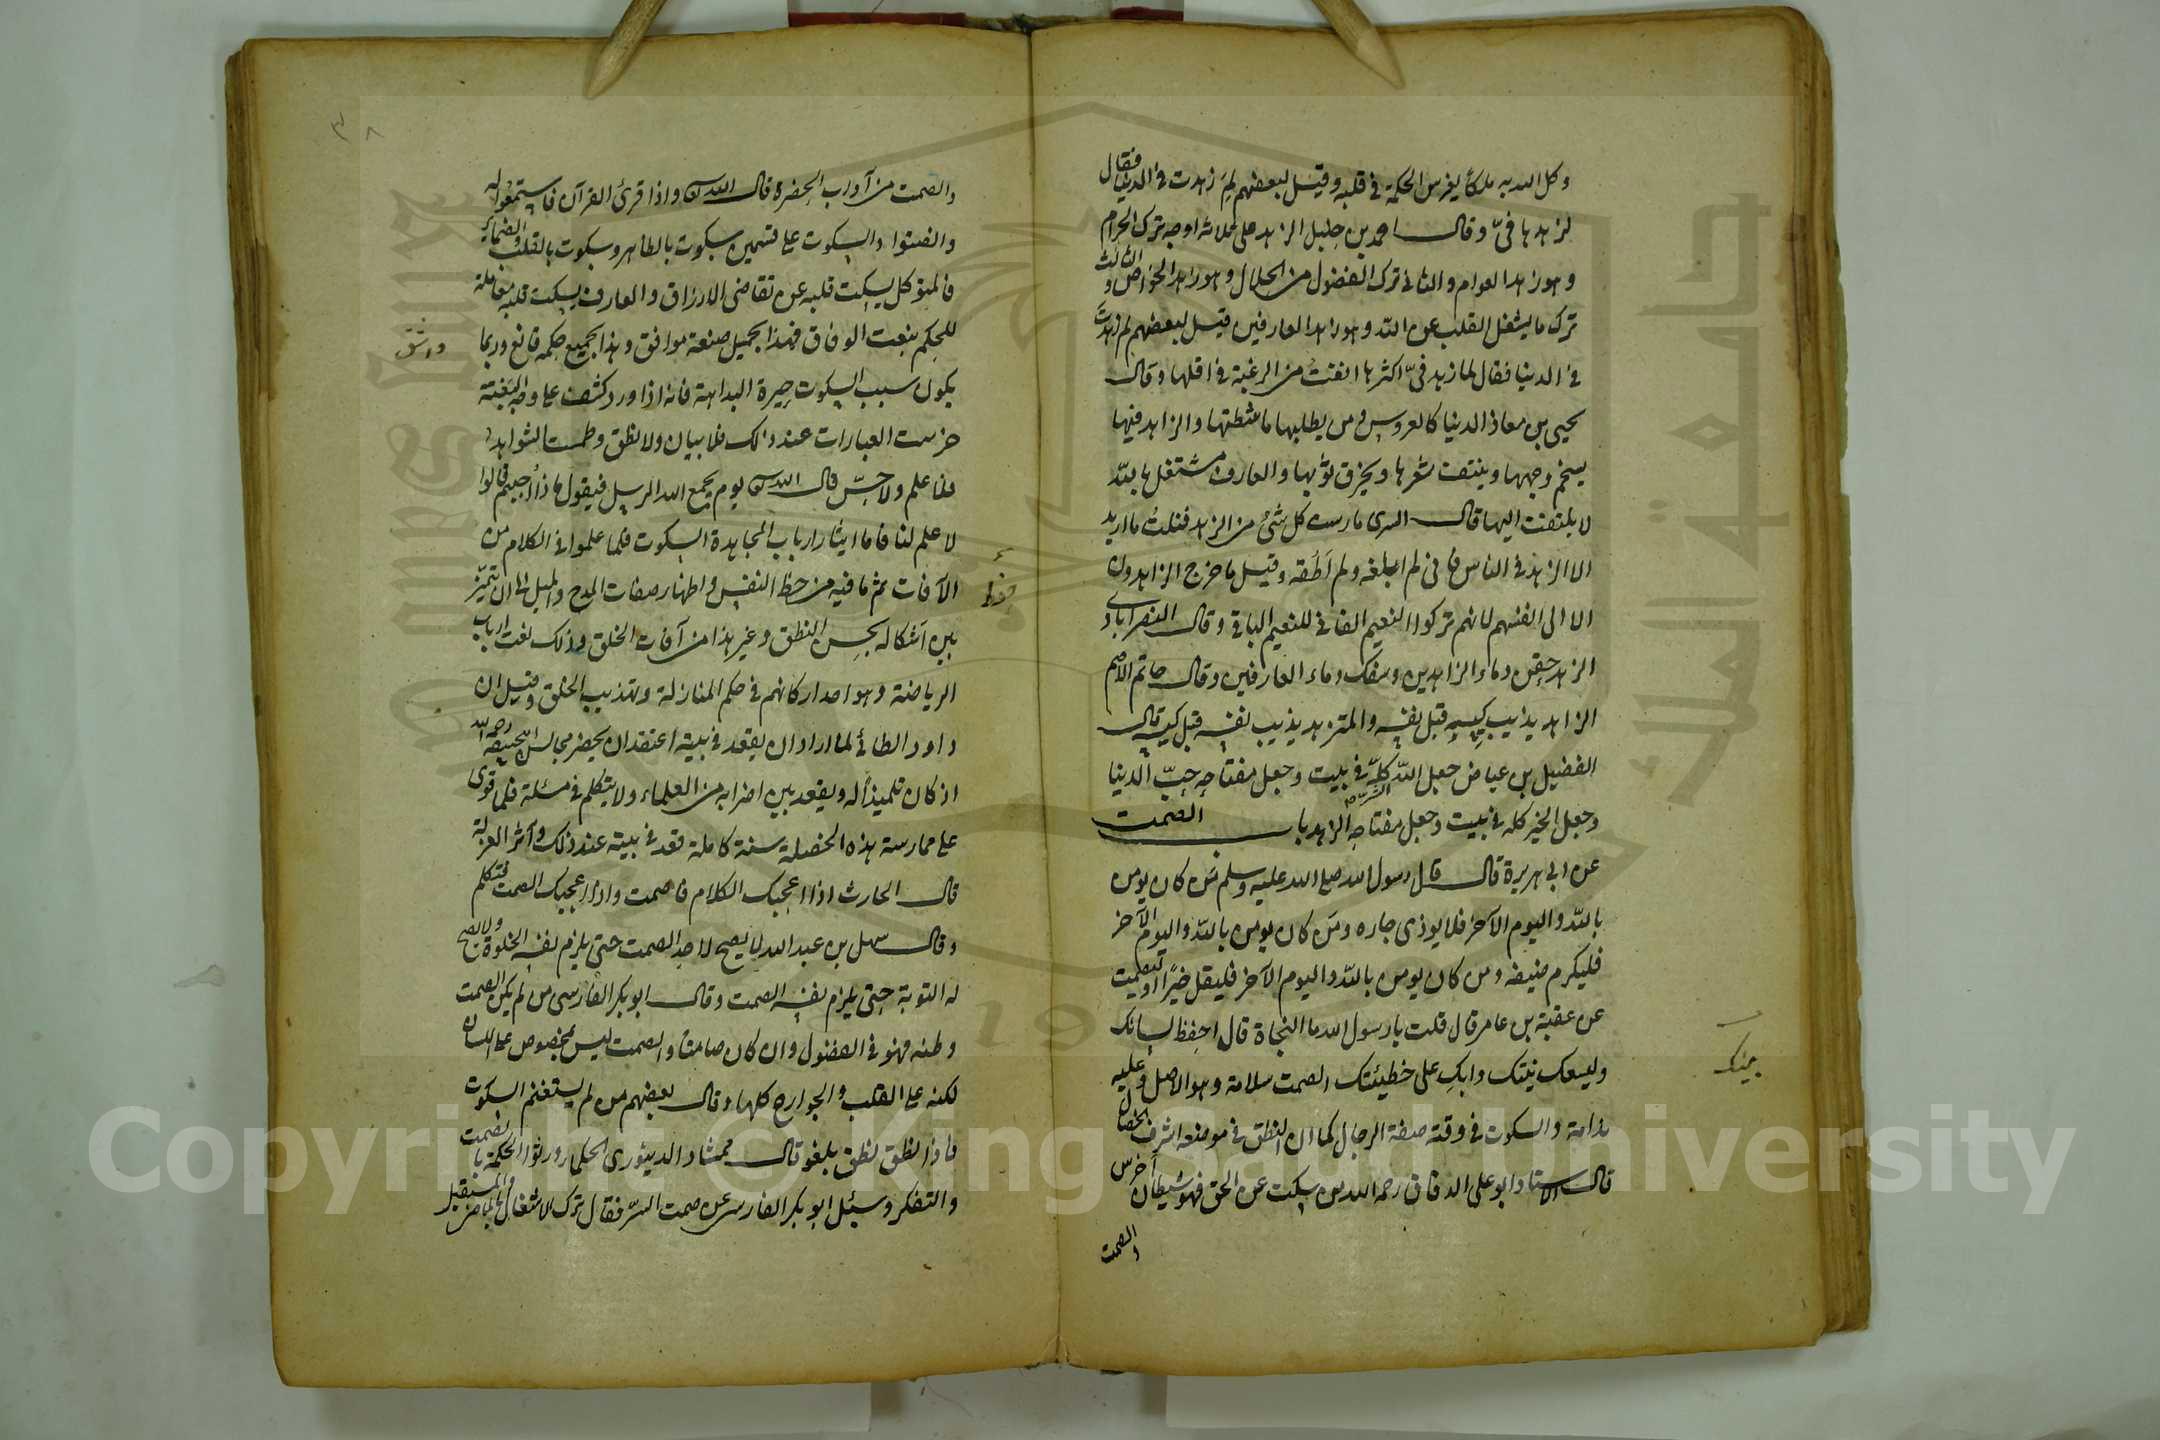 وكل الله به ملكا يغرس الحكمة في قلبه وقيل لبعضهم لِمَ زهدت في الدنيا فقال
لزهدها فيّ وقال احمد بن حنبل الزهد على ثلاثة اوجه ترك الحرام
وهو زهد العوام والثاني ترك الفضول من الحلال وهو زهد الخواص والثالث
ترك ما يشغل القلب عن الله وهو زهد العارفين قيل لبعضهم لم زهدت
في الدنيا فقال لما زهد فيّ اكثرها انفت من الرغبة في اقلها وقال
يحيى بن معاذ الدنيا كالعروس ومن يطلبها ماشطتها والزاهد فيها
يسخم وجهها وينتف شعرها ويخرق ثوبها والعارف مشتغل بالله
لا يلتفت اليها قال السرى مارست كل شئ من الزهد فنلت ما اريد
الا الزهد في الناس فانى لم ابلغه ولم اطقه وقيل ما خرج الزاهدون
الا الى انفسهم لانهم تركوا النعيم الفاني للنعيم الباقي وقال النصرابادى
الزهد حقن دماء الزاهدين وسفك دماء العارفين وقال حاتم الاصم
الزاهد يذيب كيسه قبل نفسه والمتزهد يذيب نفسه قبل كيسه قال
الفضيل بن عياض جعل الله الشر كله في بيت وجعل مفتاحه حبّ الدنيا
وجعل الخير كله في بيت وجعل مفتاحه الزهد باب الصمت
عن ابي هريرة قال قال رسول الله صلى الله عليه وسلم مَن كان يومن
بالله واليوم الآخر فلا يوذى جاره ومَن كان يومن بالله واليوم الآخر
فليكرم ضيفه ومن كان يومن بالله واليوم الآخر فليقل خيرًا او ليصمت
عن عقبة بن عامر قال قلت يا رسول الله ما النجاة قال احفظ لسانك
وليسعك بيتك وابكِ على خطيئتك الصمت سلامة وهو الاصل وعليه
بيتك
ندامة والسكوت في وقته صفة الرجال كما ان النطق في موضعه اشرف الخصال
قال الاستاد ابو على الدقاق رحمه الله من سكت عن الحق فهو شيطان اخرس
والصمت
٣٨
والصمت من آداب الحضرة قال الله واذا قرئ القرآن فاستمعوا له
وانصتوا والسكوت على قسمين سكوت بالظاهر وسكوت بالقلب والضماير
فالمتوكل يسكت قلبه عن تقاضى الارزاق والعارف يسكت قلبه مقابلة
للحكم بنعت الوفاق فهذا بجميل صنعه موافق وهذا بجميع حكمه قانع وربما
يكون سبب السكوت حيرة البداهة فانه اذا ورد كشف على وصف البغتة
خرست العبارات عند ذلك فلا بيان ولا نطق وطمست الشواهد
فلا علم ولا حسّ قال الله يوم يجمع الله الرسل فيقول ماذا أجبتم قالوا
لا علم لنا فاما ايثار ارباب المجاهدة السكوت فلما علموا في الكلام من
الآفات ثم ما فيه من حظ النفس واظهار صفات المدح والميل الى ان يتميّز
حظ
بين اشكاله بحسن النطق وغير هذا من آفات الخلق وذلك نعت ارباب
الرياضة وهو احد اركانهم في حكم المنازلة وتهذيب الخلق وقيل ان
داود الطائي لما اراد ان يقعد في بيته اعتقد ان يحضر مجالس ابي حنيفة رحمه الله
اذ كان تلميذًا له ويقعد بين اضرابه من العلماء ولا يتكلم في مسئلة فلما قوى
على ممارسة هذه الخصلة سنة كاملة قعد في بيته عند ذلك وآثر العزلة
قال الحارث اذا اعجبك الكلام فاصمت واذا اعجبك الصمت فتكلم
وقال سهل بن عبد الله لا يصح لاحد الصمت حتى يلزم نفسه الخلوة ولا يصح
له التوبة حتى يلزم نفسه الصمت وقال ابو بكر الفارسى من لم يكن الصمت
وطنه فهو في الفضول وان كان صامتا والصمت ليس بمخصوص على اللسان
لكنه على القلب والجوارح كلها وقال بعضهم من لم يستغنم السكوت
فاذا نطق نطق بلغو قال ممشاد الدينورى الحكماء ورثوا الحكمة بالصمت
والتفكر وسئل ابو بكر الفارسى عن صمت السرّ فقال ترك الاشتغال بالماضى والمستقبل
Copyright © King Saud University
جامعة الملك سعود